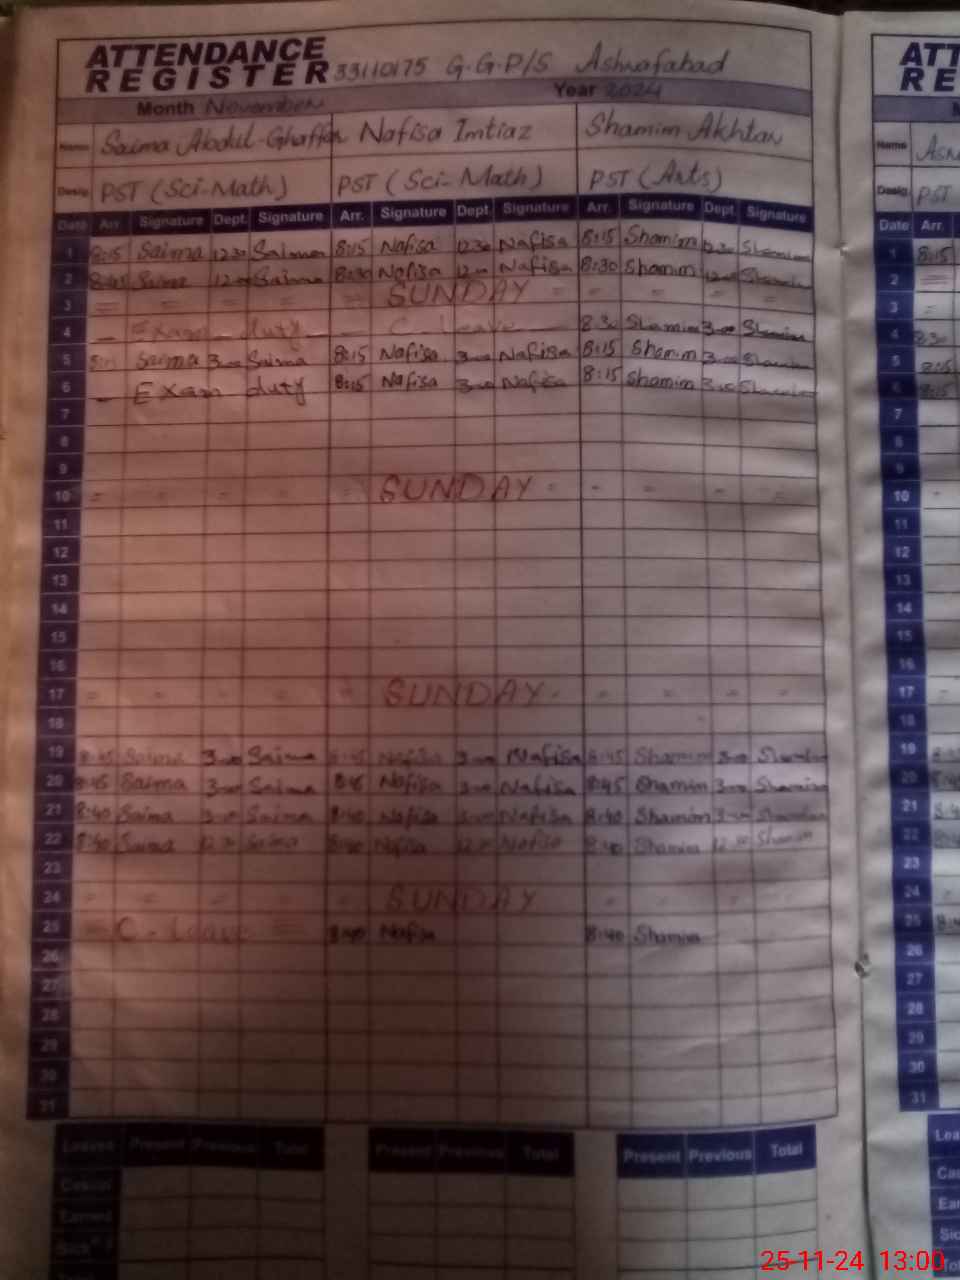 ATTENDANCE
REGISTER 33110175 G.G.P/S Ashrafabad
Month November Year 2024
Name Saima Abdul-Ghaffar Nafisa Imtiaz Shamim Akhtar
Desig. PST (Sci-Math) PST (Sci-Math) PST (Arts)
Date Arr. Signature Dept. Signature Arr. Signature Dept. Signature Arr. Signature Dept. Signature
1 8:15 Saima 12:30 Saima 8:15 Nafisa 12:30 Nafisa 8:15 Shamim 12:30 Shamim
2 8:45 Saima 12:00 Saima 8:30 Nafisa 12:00 Nafisa 8:30 Shamim 12:00 Shamim
3 = = = = = SUNDAY = = = = =
4 — Exam duty — C-leave — 8:30 Shamim 3:00 Shamim
5 Saima 3:00 Saima 8:15 Nafisa 3:00 Nafisa 8:15 Shamim 3:00 Shamim
6 — Exam duty 8:15 Nafisa 3:00 Nafisa 8:15 Shamim 3:00 Shamim
7
8
9
10 = = = = = SUNDAY = = = = =
11
12
13
14
15
16
17 = = = = = SUNDAY = = = = =
18
19 8:45 Saima 3:00 Saima 8:45 Nafisa 3:00 Nafisa 8:45 Shamim 3:00 Shamim
20 8:45 Saima 3:00 Saima 8:45 Nafisa 3:00 Nafisa 8:45 Shamim 3:00 Shamim
21 8:40 Saima 3:00 Saima 8:40 Nafisa 3:00 Nafisa 8:40 Shamim 3:00 Shamim
22 8:40 Saima 12:30 Saima 8:40 Nafisa 12:30 Nafisa 8:40 Shamim 12:30 Shamim
23
24 = = = = = SUNDAY = = = =
25 = C-Leave = 8:40 Nafisa 8:40 Shamim
26
27
28
29
30
31
Leaves Present Previous Total Present Previous Total Present Previous Total
Casual
Earned
Sick
ATT
RE
Name
Desig. PST
Date Arr.
1 8:15
2 =
3 =
4 8:30
5 8:15
6 8:15
7
8
9
10
11
12
13
14
15
16
17
18
19
20
21
22
23
24
25
26
27
28
29
30
31
Lea
Cas
Ear
Sic
25-11-24 13:00